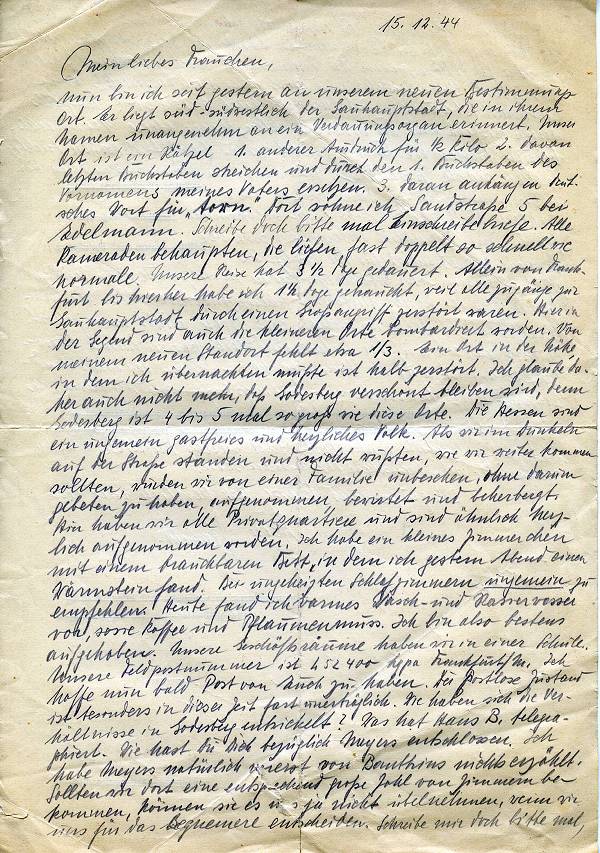 15.12.44
Mein liebes Frauchen,
nun bin ich seit gestern an unserem neuen Bestimmungs-
ort. Er liegt süd-südwestlich der Gauhauptstadt, die in ihrem
Namen unangenehm an ein Verdauungsorgan erinnert. Unser
Ort ist ein Rätsel 1. anderer Ausdruck für ½ Kilo 2. davon
letzten Buchstaben streichen und durch den 1. Buchstaben des
Vornamens meines Vaters ersetzen. 3. daran anhängen deut-
sches Wort für „ Dort wohne ich Sandstraße 5 bei
Edelmann. Schreibe doch bitte mal Einschreibebriefe. Alle
Kameraden behaupten, die liefen fast doppelt so schnell wie
normale. Unsere Reise hat 3 ½ Tage gedauert. Allein von Frank-
furt bis hierher habe ich 1½ Tage gebraucht, weil alle Zugänge zur
Gauhauptstadt durch einen Großangriff zerstört waren. Hier in
der Gegend sind auch die kleineren Orte bombardiert worden. Von
meinem neuen Standort fehlt etwa 1/3. Ein Ort in der Nähe
in dem ich übernachten mußte ist halb zerstört. Ich glaube da-
her auch nicht mehr, daß Godesberg verschont bleiben wird, denn
Godesberg ist 4 bis 5 mal so groß wie diese Orte. Die Hessen sind
ein ungemein gastfreies und herzliches Volk. Als wir im Dunkeln
auf der Straße standen und nicht wußten, wie wir weiter kommen
sollten, wurden wir von einer Familie unbesehen, ohne darum
gebeten zu haben, aufgenommen, bewirtet und beherbergt.
Hier haben wir alle Privatquartiere und sind ähnlich herz-
lich aufgenommen worden. Ich habe ein kleines Zimmerchen
mit einem brauchbaren Bett, in dem ich gestern Abend einen
Wärmstein fand. Bei ungeheizten Schlafzimmern ungemein zu
empfehlen. Heute fand ich warmes Wasch- und Rasierwasser
vor, sowie Kaffee und Pflaumenmuss. Ich bin also bestens
aufgehoben. Unsere Geschäftsräume haben wir in einer Schule.
Unsere Feldpostnummer ist 452400 Frankfurt/M. Ich
hoffe nun bald Post von Euch zu haben. Der postlose Zustand
ist besonders in dieser Zeit fast unerträglich. Wie haben sich die Ver-
hältnisse in Godesberg entwickelt? Was hat Hans B. telegra-
phiert. Wie hast Du Dich bezüglich Meyers entschlossen. Ich
habe Meyers natürlich vorerst von nichts erzählt.
Sollten wir dort eine entsprechend große Zahl von Zimmern be-
kommen, können sie es uns ja nicht übelnehmen, wenn wir
uns für das bequemere entscheiden. Schreibe mir doch bitte mal,